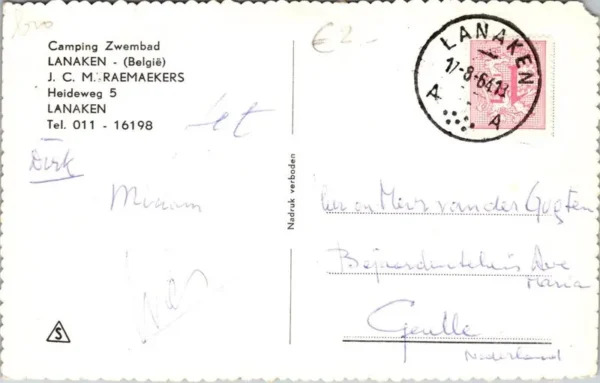 €2-
Camping Zwembad
LANAKEN - (België)
J. C. M. RAEMAEKERS
Heideweg 5
LANAKEN
Tel. 011 - 16198
Dirk
Miriam
Nadruk verboden
LANAKEN
17-8-64 13
A A
1F
en Mevr van der
Ave
Maria
Geulle
Nederland
S